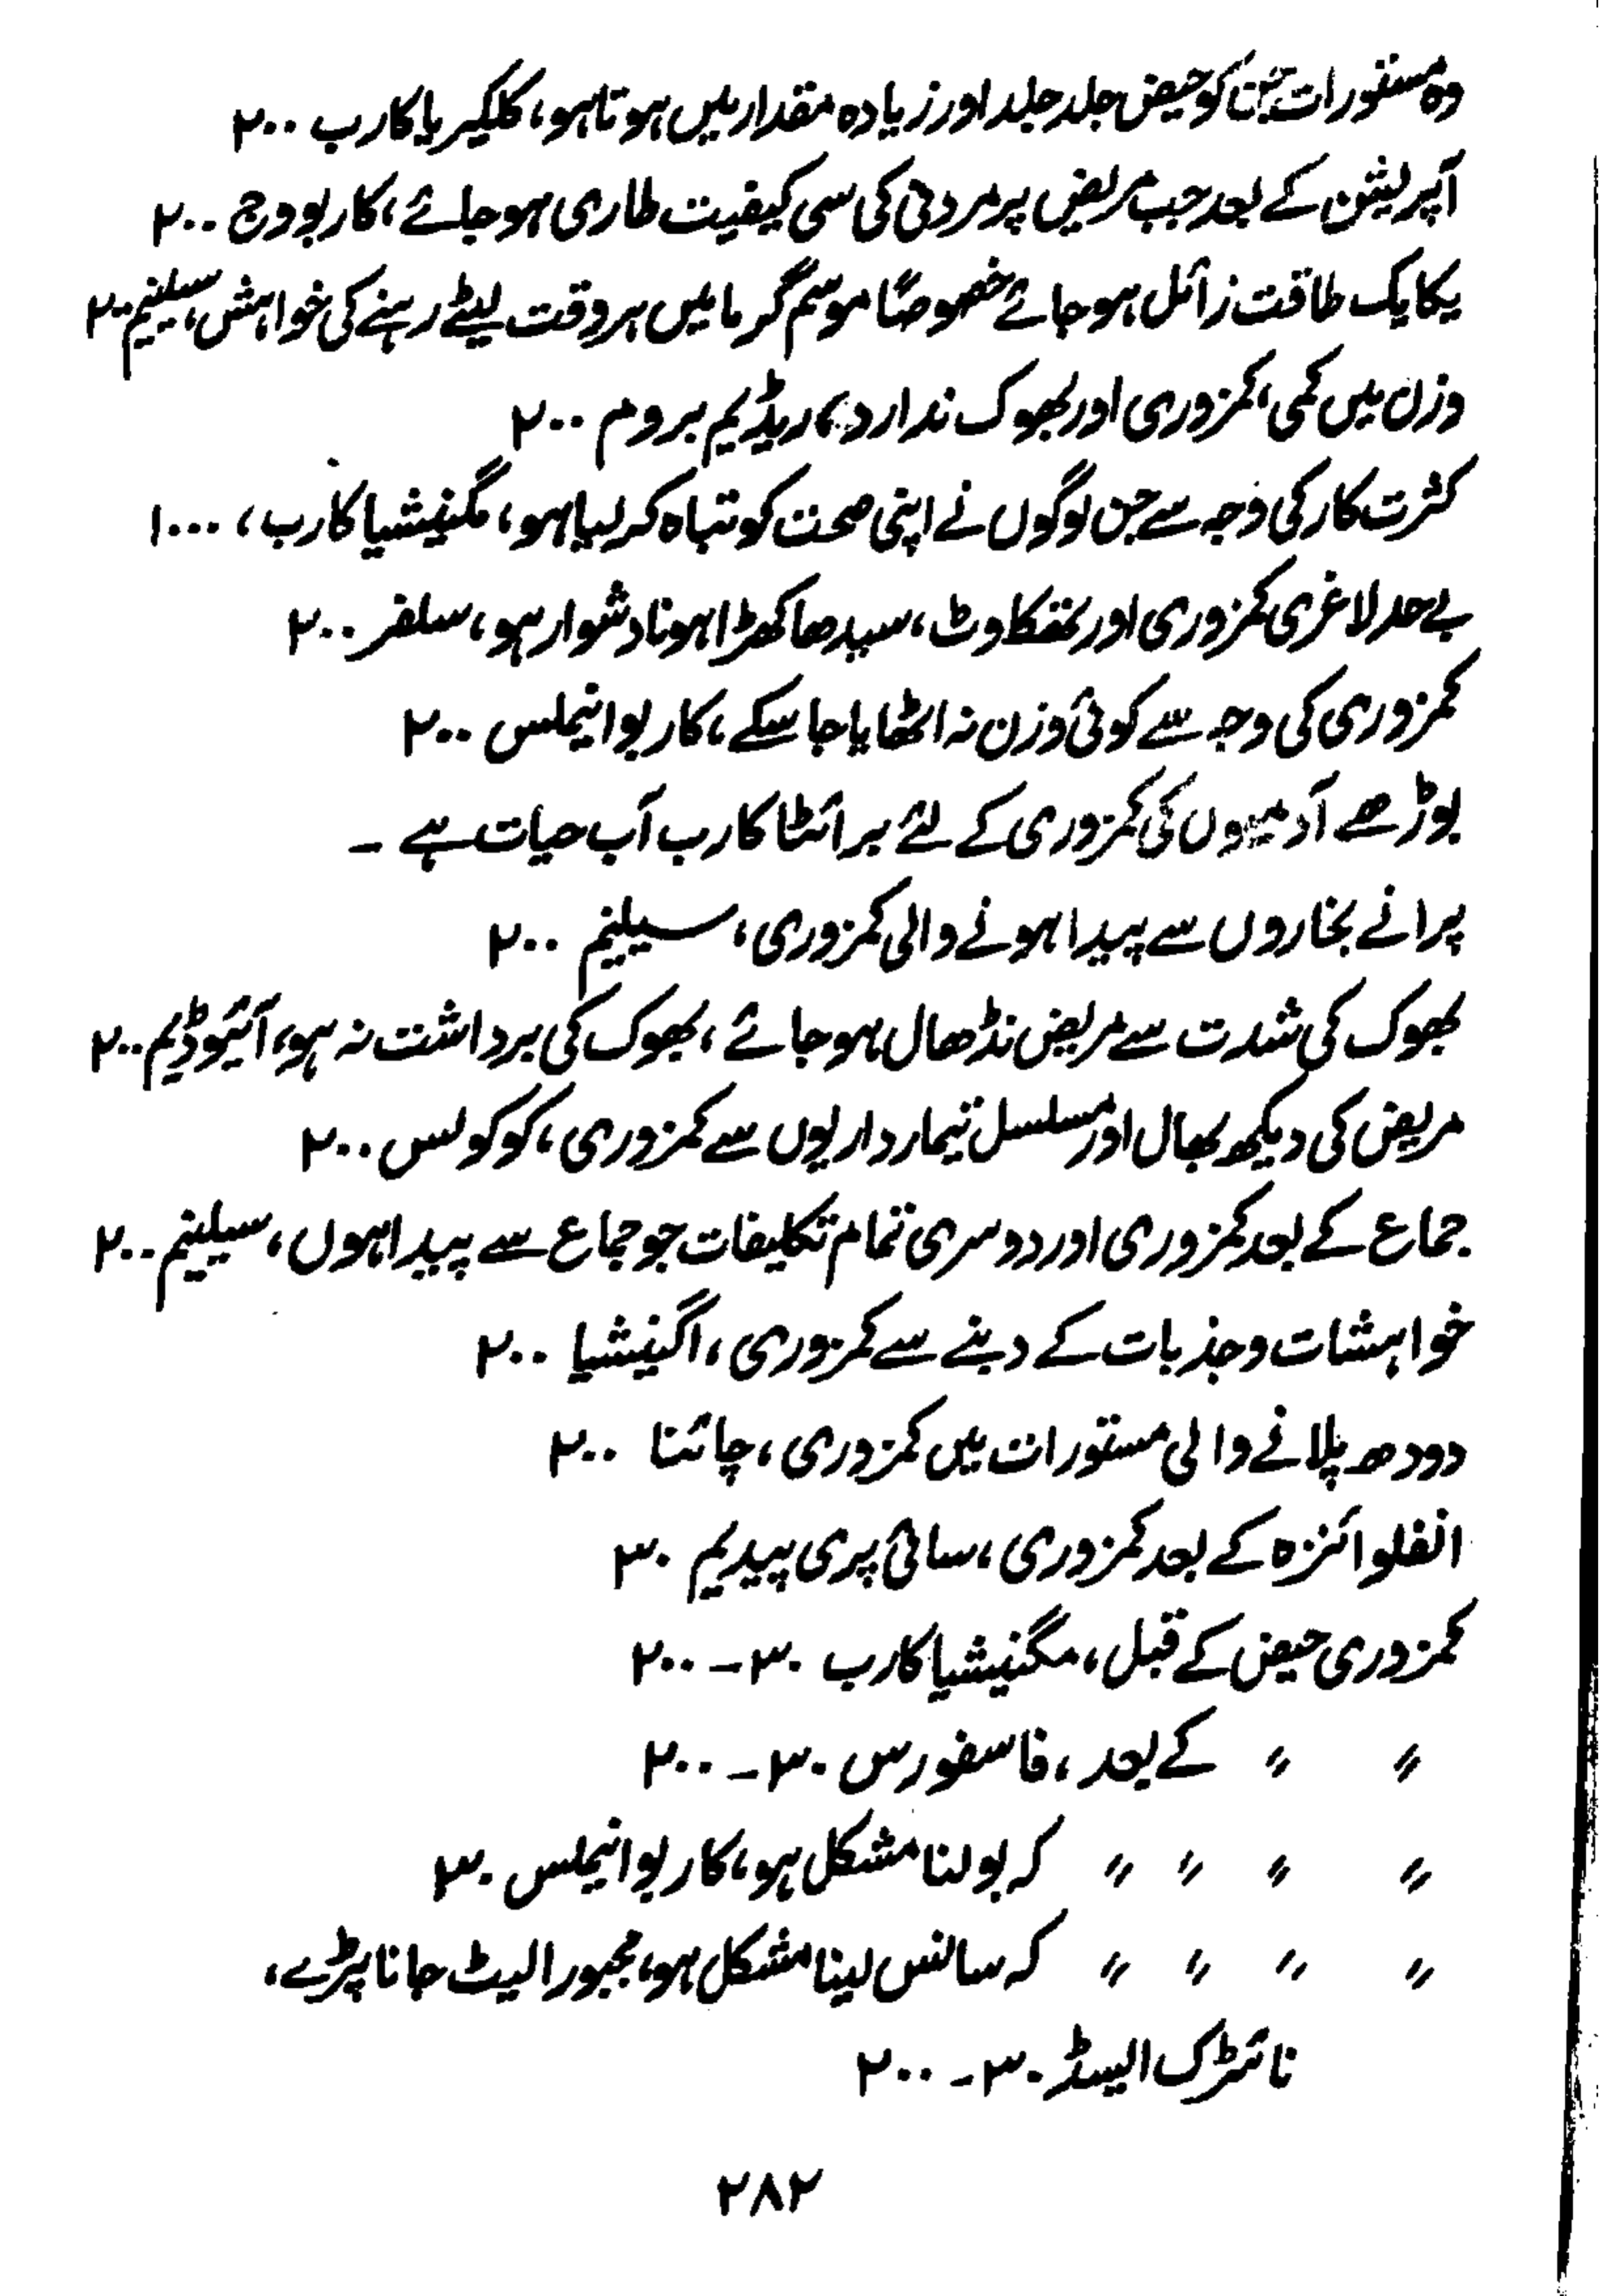 وہ مستورات جن کو حیض جلد جلد اور زیادہ مقدار میں ہوتا ہو، کلکیریا کارب ۲۰۰
آپریشن کے بعد جب مریض پر مردنی کی سی کیفیت طاری ہو جائے، کاربو ووج ۲۰۰
یکایک طاقت زائل ہو جائے خصوصاً موسم گرما میں ہر وقت لیٹے رہنے کی خواہش، سیلنیم ۲۰۰
وزن میں کمی، کمزوری اور بھوک ندارد، ریڈیم بروم ۲۰۰
کثرت کار کی وجہ سے جن لوگوں نے اپنی صحت کو تباہ کر لیا ہو، مگنیشیا کارب، ۱۰۰۰
بے حد لاغری کمزوری اور تھکاوٹ، سیدھا کھڑا ہونا دشوار ہو، سلفر ۲۰۰
کمزوری کی وجہ سے کوئی وزن نہ اٹھایا جا سکے، کاربو انیملس ۲۰۰
بوڑھے آدمیوں کی کمزوری کے لئے برائٹا کارب آب حیات ہے ۔
پرانے بخاروں سے پیدا ہونے والی کمزوری، سیلنیم ۲۰۰
بھوک کی شدت سے مریض نڈھال ہو جائے، بھوک کی برداشت نہ ہو، آئیوڈیم ۲۰۰
مریض کی دیکھ بھال اور مسلسل تیمارداریوں سے کمزوری، کوکولس ۲۰۰
جماع کے بعد کمزوری اور دوسری تمام تکلیفات جو جماع سے پیدا ہوں، سیلینیم ۲۰۰
خواہشات و جذبات کے دبنے سے کمزوری، اگنیشیا ۲۰۰
دودھ پلانے والی مستورات میں کمزوری، چائنا ۲۰۰
انفلوائنزہ کے بعد کمزوری، سائی پری پیڈیم ۳۰
کمزوری حیض کے قبل، مگنیشیا کارب ۳۰ - ۲۰۰
〃 〃 کے بعد، فاسفورس ۳۰ - ۲۰۰
〃 〃 〃 〃 کہ بولنا مشکل ہو، کاربو انیملس ۳۰
〃 〃 〃 〃 کہ سانس لینا مشکل ہو، مجبوراً لیٹ جانا پڑے،
نائٹرک ایسڈ ۳۰ - ۲۰۰
۲۸۲